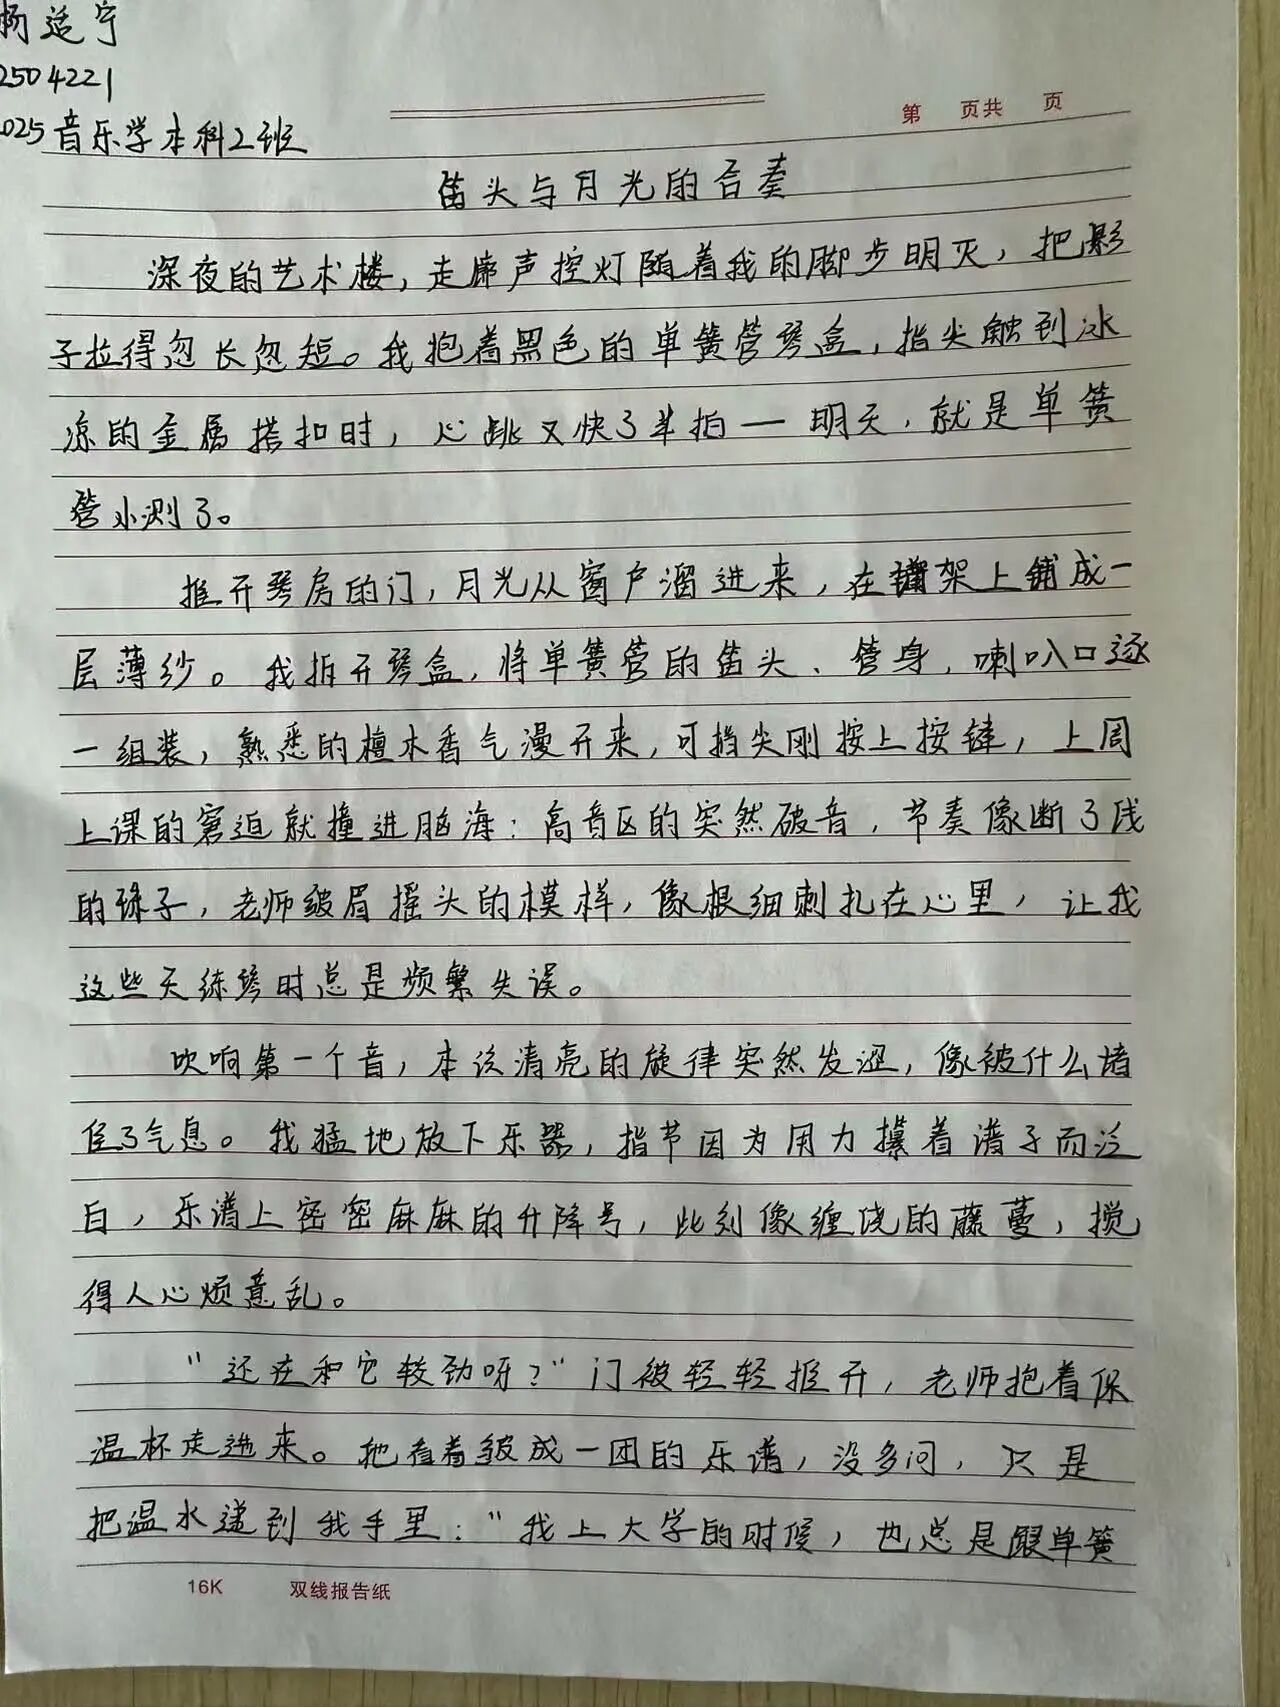 杨适宁
2504221
025音乐学本科2班
第 页共 页
笛头与月光的合奏
深夜的艺术楼，走廊声控灯随着我的脚步明灭，把影
子拉得忽长忽短。我抱着黑色的单簧管琴盒，指尖触到冰
凉的金属搭扣时，心跳又快了半拍一明天，就是单簧
管小测了。
推开琴房的门，月光从窗户溜进来，在谱架上铺成一
层薄纱。我拍开琴盒，将单簧管的笛头、管身，喇叭口逐
一组装，熟悉的檀木香气漫开来，可指尖刚按上按键，上周
上课的窘迫就撞进脑海：高音区的突然破音，节奏像断了线
的珠子，老师皱眉摇头的模样，像根细刺扎在心里，让我
这些天练琴时总是频繁失误。
吹响第一个音，本该清亮的旋律突然发涩，像被什么堵
住了气息。我猛地放下乐器，指节因为用力攥着谱子而泛
白，乐谱上密密麻麻的升降号，此刻像缠绕的藤蔓，搅
得人心烦意乱。
“还在和它较劲呀？”门被轻轻推开，老师抱着保
温杯走进来。他看着皱成一团的乐谱，没多问，只是
把温水递到我手里：“我上大学的时候，也总是跟单簧
16K 双线报告纸